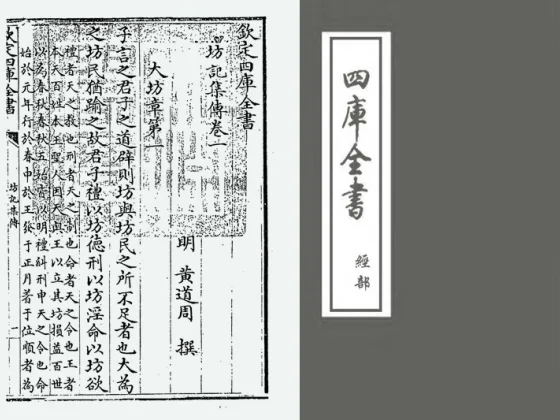 欽定四庫全書
坊記集傳卷一
明 黃道周 撰
大坊章第一
子言之君子之道辟則坊與坊民之所不足者也大為
之坊民猶踰之故君子禮以坊德刑以坊淫命以坊欲
禮者天之教也刑者天之制也命者天之令也王者
本天百姓本王聖人因天與王以立其坊損益百世
以為春秋春秋五始皆以明禮糾刑申天之令也命
始於元年行於春申於王發于正月若于位順者為
欽定四庫全書
坊記集傳
一
四庫全書
經部